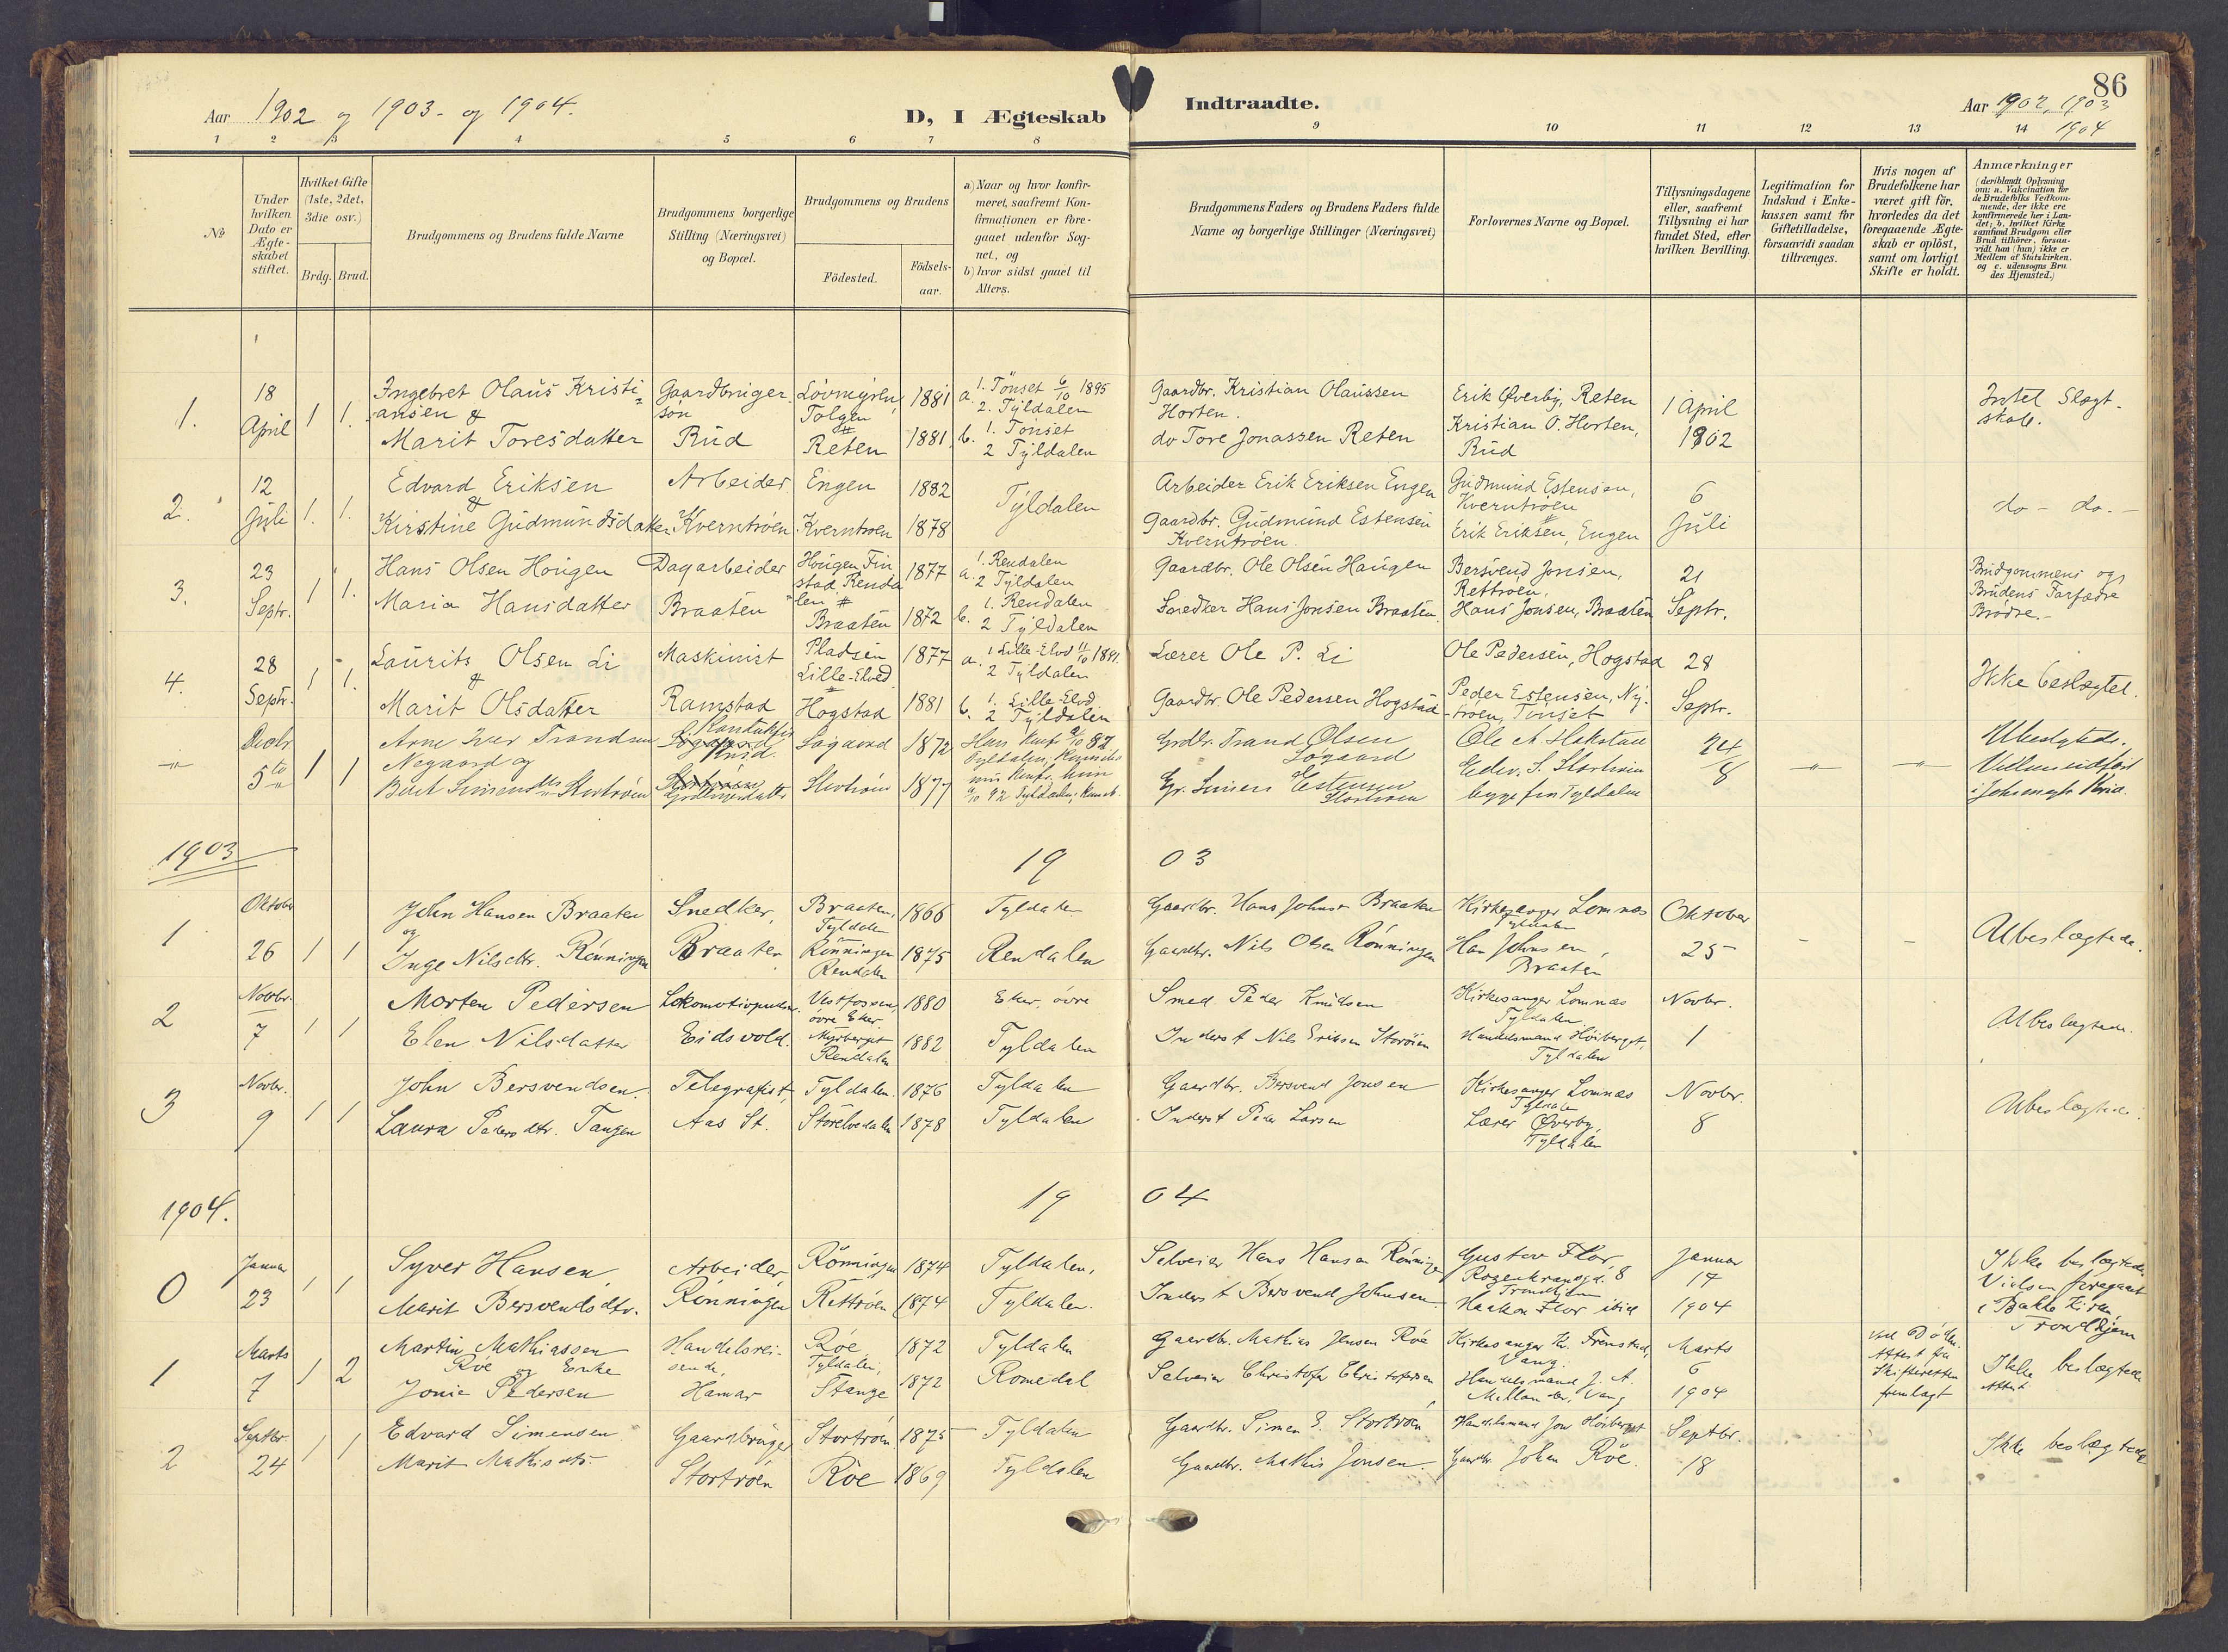 86
Aar 1902 og 1903. og 1904.
D, I Ægteskab
Indtraadte.
Aar 1902, 1903
1904
1 2 3 4 5 6 7 8 9 10 11 12 13 14
No
Under
hvilken
Dato er
Ægte-
skabet
stiftet.
Hvilket Gifte
(1ste, 2det,
3die osv.)
Brdg. Brud.
Brudgommens og Brudens fulde Navne
Brudgommens borgerlige
Stilling (Næringsvei)
og Bopæl.
Brudgommens og Brudens
Födested.
Födsels-
aar.
a) Naar og hvor konfir-
meret, saafremt Kon-
firmationen er fore-
gaaet udenfor Sog-
net, og
b) hvor sidst gaaet til
Alters.
Brudgommens Faders og Brudens Faders fulde
Navne og borgerlige Stillinger (Næringsvei)
Forlovernes Navne og Bopæl.
Tillysningsdagene
eller, saafremt
Tillysning ei har
fundet Sted, efter
hvilken Bevilling.
Legitimation for
Indskud i Enke-
kassen samt for
Giftetilladelse,
forsaavidt saadan
tiltrænges.
Hvis nogen af
Brudefolkene har
været gift för,
hvorledes da det
foregaaende Ægte-
skab er oplöst,
samt om lovligt
Skifte er holdt.
Anmærkninger
(deriblandt Oplysning
om: a. Vakcination for
de Brudefolks Vedkom-
mende, der ikke ere
konfirmerede her i Lan-
det; b. hvilket Kirke
samfund Brudgom eller
Brud tilhörer, forsaa-
vidt han (hun) ikke er
Medlem af Statskirken.
og c. udensogns Bru
des Hjemsted.)
1.
18
April
1 1.
Ingebret Olaus Kristi-
ansen &
Marit Toresdatter
Gaardbruger
sön
Rud
Lövmyren,
Tolgen
Reten
1881
1881
a. 1. Tönset 6/10 1895
2. Tyldalen
b. 1. Tönset
2 Tyldalen
Gaardbr. Kristian Olaussen
Horten.
do Tore Jonassen Reten
Erik Øverby, Reten
Kristian O. Horten,
Rud
1 April
1902
Intet Slægt-
skab.
2.
12
Juli
1. 1.
Edvard Eriksen
&
Kirstine Gudmundsdatter
Arbeider
Kverntröen
Engen
Kverntroen
1882
1878
Tyldalen
Arbeider Erik Eriksen Engen
Gaardbr. Gudmund Estensen
Kverntröen.
Gudmund Estensen,
Kverntröen
Erik Eriksen, Engen
6
Juli
do - do. -
3.
23
Septr.
1 1.
Hans Olsen Hougen
Maria Hansdatter
Dagarbeider
Braaten
Hougen Fin
stad, Renda
len
Braaten
1877
1872
a. 1. Rendalen
2 Tyldalen
b. 1. Rendalen
2 Tyldalen
Gaardbr. Ole Olsen Haugen
Snedker Hans Jonsen Braaten.
Bersvend Jonsen,
Rettröen,
Hans Jonsen, Braaten
21
Septr.
Brudgommens og
Brudens Farfædre
Brödre.-
4.
28
Septr.
1 1.
Laurits Olsen Li
&
Marit Olsdatter
Maskinist
Ramstad
Pladsen
Lille-Elved
Hogstad
1877
1881
a. 1 Lille-Elvd 11/10 1891.
2 Tyldalen
b. 1. Lille-Elvd
2 Tyldalen
Lærer Ole P. Li
Gaardbr. Ole Pedersen Hogstad
Ole Pedersen, Hogstad
Peder Estensen, Ny-
tröen, Tönset
28
Septr.
Ikke beslægtet.
5te
1 1
Arne Iver Trondsen
Nygaard og
Sögaard
Stortröen
1872
1877
Grdbr. Trond Olsen
Sögaard
Gr. Simen Estensen
Stortröen
Edv. S. Stortröen
begge fra Tyldalen
24
8
Ubeslægtede.
1903
19 03
1
Oktober
26
1 1
John Hansen Braaten
og
Inge Nilsdtr. Rönningen
Snedker,
Braaten
Braaten,
Tyldalen
Rönningen
Rendalen
1866
1875
Tyldalen
Rendalen
Gaardbr. Hans Johnsen Braaten
Gaardbr. Nils Olsen Rönningen
Kirkesanger Lomnæs
Tyldalen
Han Johnsen,
Braaten
Oktober
25
Ubeslægtede.
2
Novbr.
7
1 1
Morten Pedersen
Elen Nilsdatter
Lokomotivpudser.
Eidsvold.
Vestfossen,
övre Eker.
Nysberget
Rendalen
1880
1882
Eker, övre
Tyldalen
Smed Peder Knudsen
Inderst Nils Eriksen Storöien
Kirkesanger Lomnæs
Tyldalen
Handelsmand Höiberget,
Tyldalen
Novbr.
1
Ubeslægtede.
3
Novbr.
9
1 1
John Bersvendsen.
Laura Pedersdtr. Tangen
Telegrafist,
Aas St.
Tyldalen.
Storelvedalen
1876
1878
Tyldalen
Tyldalen
Gaardbr. Bersvend Jonsen
Inderst Peder Larsen
Kirkesanger Lomnæs
Tyldalen
Lærer Øverby,
Tyldalen
Novbr.
8
Ubeslægtede.
1904.
19 04
0
Januar
23
1 1
Syver Hansen,
Marit Bersvendsdtr.
Arbeider,
Rönningen
Rönningen
Rettröen
1874
1874
Tyldalen.
Tyldalen.
Selveier Hans Hansen Rönningen
Inderst Bersvend Johnsen.
Gustav Flor
Rozenkransgd. 8
Trondhjem
Haakon Flor ibid
Januar
17
1904
Ikke beslægtede
Vielsen foregaaet
i Bakke Kirke,
Trondhjem
1
Marts
7
1 2
Martin Mathiassen
Röe og Enke
Jonie Pedersen
Handelsrei-
sende,
Hamar
Röe
Tyldalen,
Stange
1872
1872
Tyldalen
Romedal
Gaardbr. Mathias Jensen Röe
Selveier Christofer Christofersen
Kirkesanger Kr. Frenstad,
Vang.
Handelsmand J. A.
Mellander, Vang
Marts
6
1904
ved Döden.
Attest fra
Skifteretten
fremlagt
Ikke beslægtede
Attest
2
Septbr.
24
1 1
Edvard Simensen
Marit Mathisdtr.
Gaardbruger
Stortröen
Stortröen.
Röe
1875
1869
Tyldalen
Tyldalen
Gaardbr. Simen E. Stortröen
Gaardbr. Mathis Jonsen.
Handelsmand Jon Höiberget
Gaardbr. Johan Röe.
Septbr.
18
Ikke beslægtede